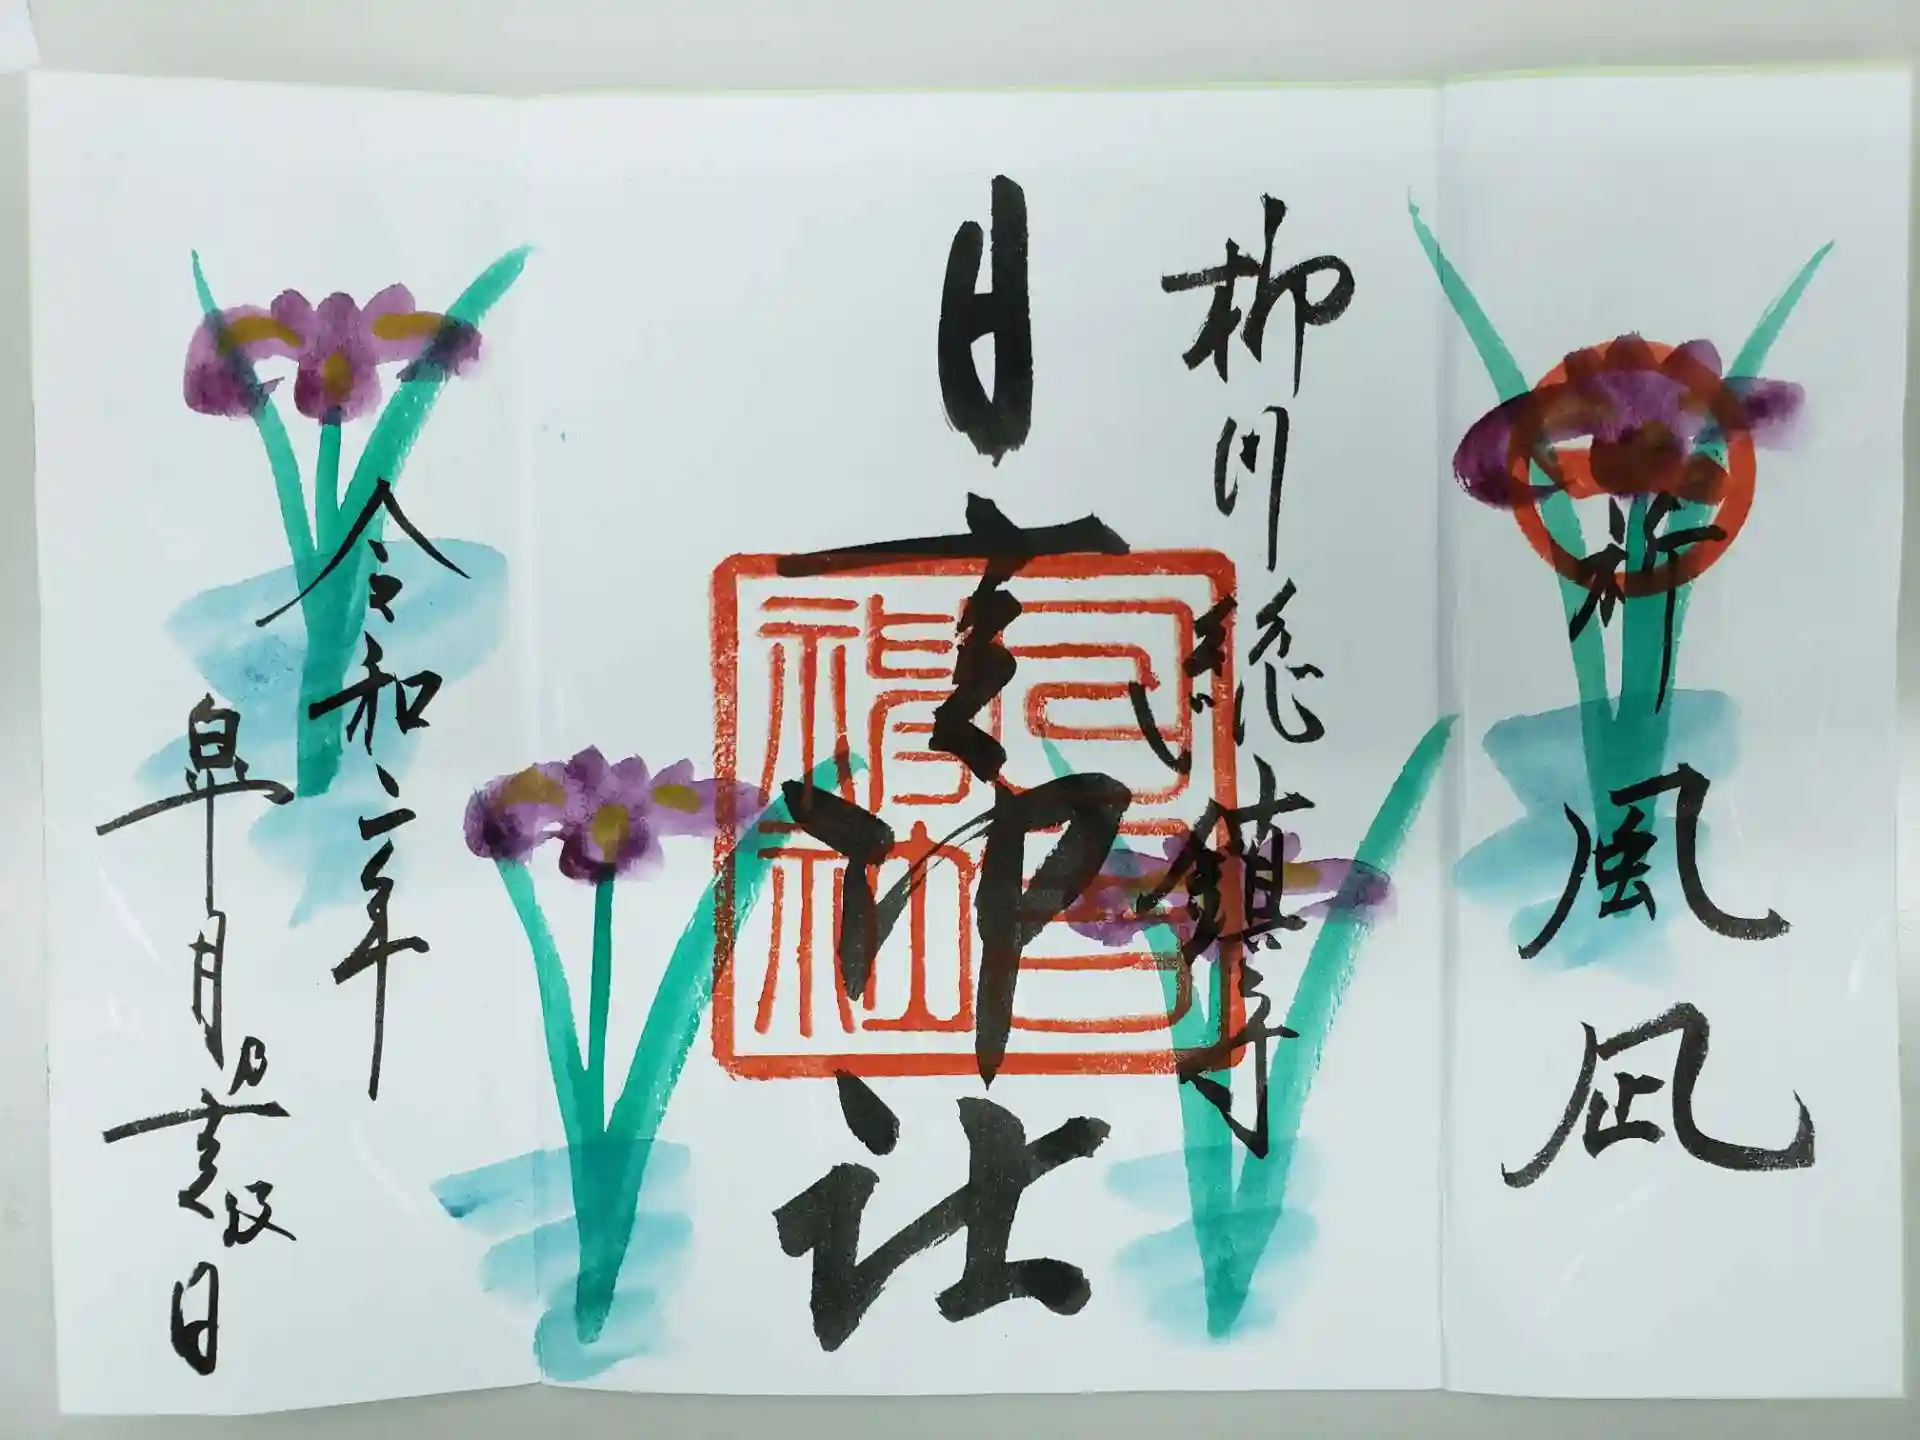 祈
風凪
柳川総鎮守
日吉神社
日吉神社
令和二年
皐月乃穀日